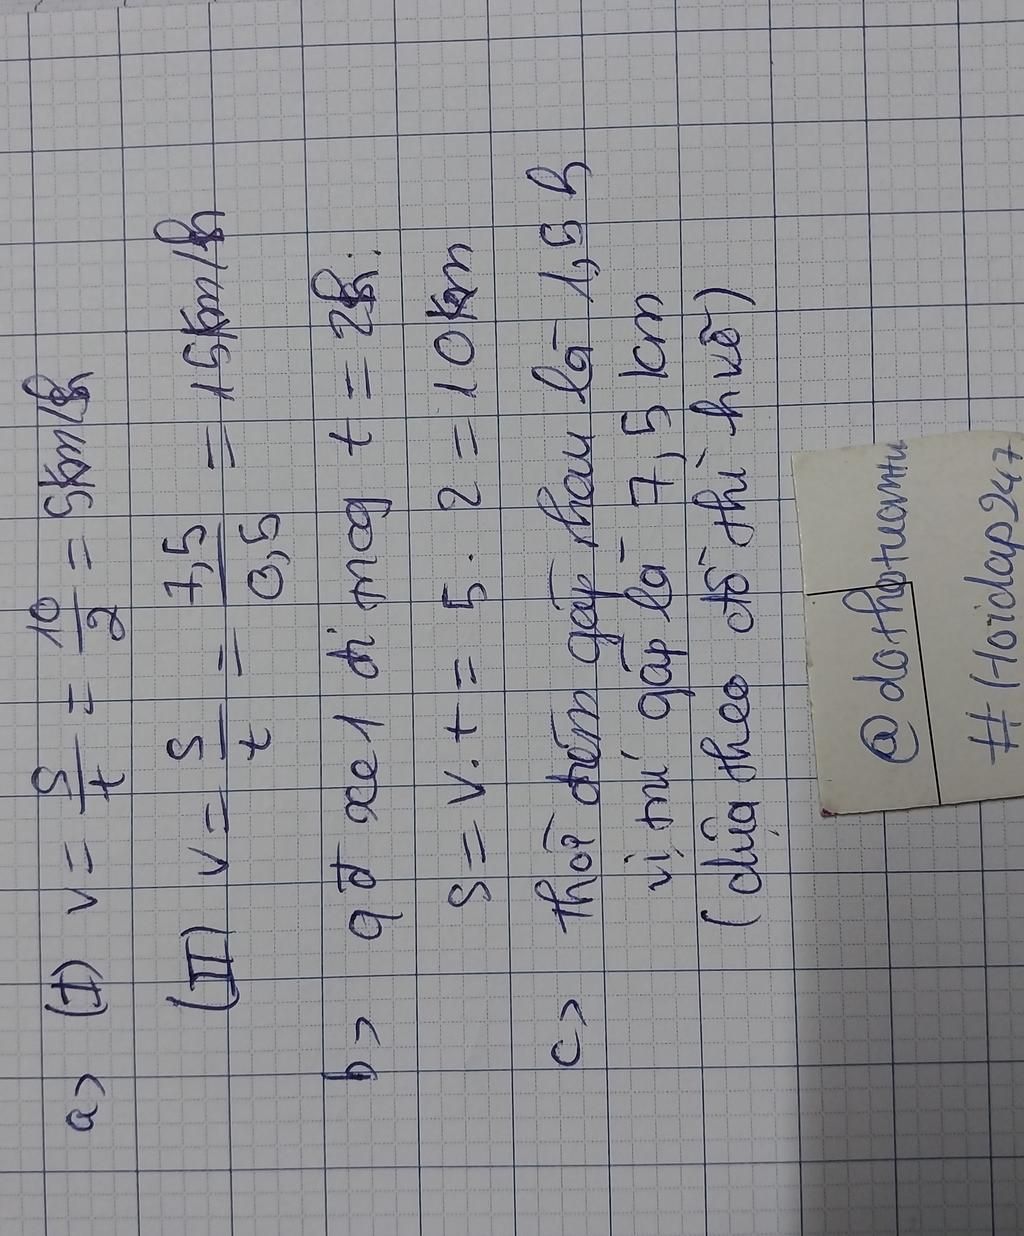 a> (I) v = s/t = 10/2 = 5km/h
(II) v = s/t = 7,5/0,5 = 15km/h
b> qđ xe 1 đi trong t = 2h.
s = v.t = 5.2 = 10km
c> thời điểm gặp nhau là 1,5h
vị trí gặp là 7,5 km
(dựa theo đồ thị)
@dothptuanntu
#Hoidap247